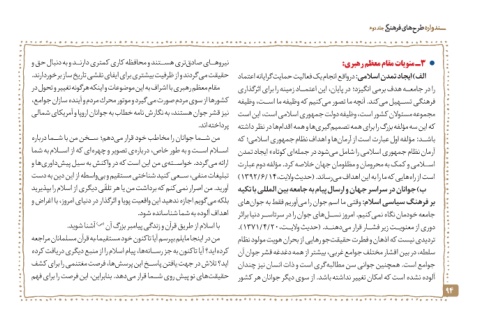 سند واره طرح‌های فرهنگی جلد دوم
۳ـ منویات مقام معظم رهبری:
الف) ایجاد تمدن اسلامی: در واقع انجام یک فعالیت حمایت‌گرایانه اعتماد
را در جامعه هدف برمی انگیزد؛ در پایان، این اعتماد زمینه را برای اثرگذاری
فرهنگی تسهیل می‌کند. آنچه ما تصور می‌کنیم که وظیفه ما است، وظیفه
مجموعه مسئولان کشور است، وظیفه دولت جمهوری اسلامی است، این است
که این سه مؤلفه بزرگ را برای همه تصمیم‌گیری‌ها و همه اقدام‌ها در نظر داشته
باشید: مؤلفه اول عبارت است از آرمان‌ها و اهداف نظام جمهوری اسلامی؛ که
آرمان نظام جمهوری اسلامی را شامل می‌شود در جمله‌ای کوتاه؛ ایجاد تمدن
اسلامی و کمک به محرومان و مظلومان جهان خلاصه کرد. مؤلفه دوم عبارت
است از راه‌هایی که ما را به این اهداف می‌رساند. (حدیث ولایت، ۱۳۹۲/۶/۱۴)
ب) جوانان در سراسر جهان و ارسال پیام به جامعه بین المللی با تکیه
بر فرهنگ سیاسی اسلام: وقتی ما اسم جوان را می‌آوریم فقط به جوان‌های
جامعه خودمان نگاه نمی‌کنیم. امروز نسل‌های جوان را در سرتاسر دنیا براثر
دوری از معنویت زیر فشار قرار می‌دهند. (حدیث ولایت، ۱۳۷۱/۴/۲۰).
تردیدی نیست که اذهان و فطرت حقیقت‌جو رهایی از بحران هویت مولود نظام
سلطه، در بین اقشار مختلف جوامع غربی، بیشتر از همه دغدغه قشر جوان آن
جوامع است. همچنین جوانی سن مطالبه‌گری است و ذات انسان نیز چندان
آلوده نشده است که امکان تغییر نداشته باشد. از سوی دیگر جوانان هر کشور
نیروهای صادق‌تری هستند و محافظه کاری کمتری دارند و به دنبال حق و
حقیقت می‌گردند و از ظرفیت بیشتری برای ایفای نقشی تاریخ ساز برخوردارند.
مقام معظم رهبری با اشراف به این موضوعات و اینکه هرگونه تغییر و تحول در
کشورها از سوی مردم صورت می‌گیرد و موتور محرک مردم و آینده سازان جوامع،
نیز قشر جوان هستند، به نگارش نامه خطاب به جوانان اروپا و آمریکای شمالی
پرداخته‌اند.
من شما جوانان را مخاطب خود قرار می‌دهم؛ سخن من با شما درباره
اسلام است و به طور خاص، درباره‌ی تصویر و چهره‌ای که از اسلام به شما
ارائه می‌گردد. خواسته‌ی من این است که در واکنش به سیل پیش‌داوری‌ها و
تبلیغات منفی، سعی کنید شناختی مستقیم و بی‌واسطه از این دین به دست
آورید. من اصرار نمی کنم که برداشت من یا هر تلقّی دیگری از اسلام را بپذیرید
بلکه می‌گویم اجازه ندهید این واقعیت پویا و اثرگذار در دنیای امروز، با اغراض و
اهداف آلوده به شما شناسانده شود.
با اسلام از طریق قرآن و زندگی پیامبر بزرگ آن (ص) آشنا شوید.
من در اینجا مایلم بپرسم آیا تاکنون خود مستقیما به قرآن مسلمانان مراجعه
کرده اید؟ آیا تاکنون به جز رسانه‌ها، پیام اسلام را از منبع دیگری دریافت کرده
اید؟ تلاش در جهت یافتن پاسخ این پرسش‌ها، فرصت مغتنمی را برای کشف
حقیقت‌های نو پیش روی شما قرار می‌دهد. بنابراین، این فرصت را برای فهم
۹۴